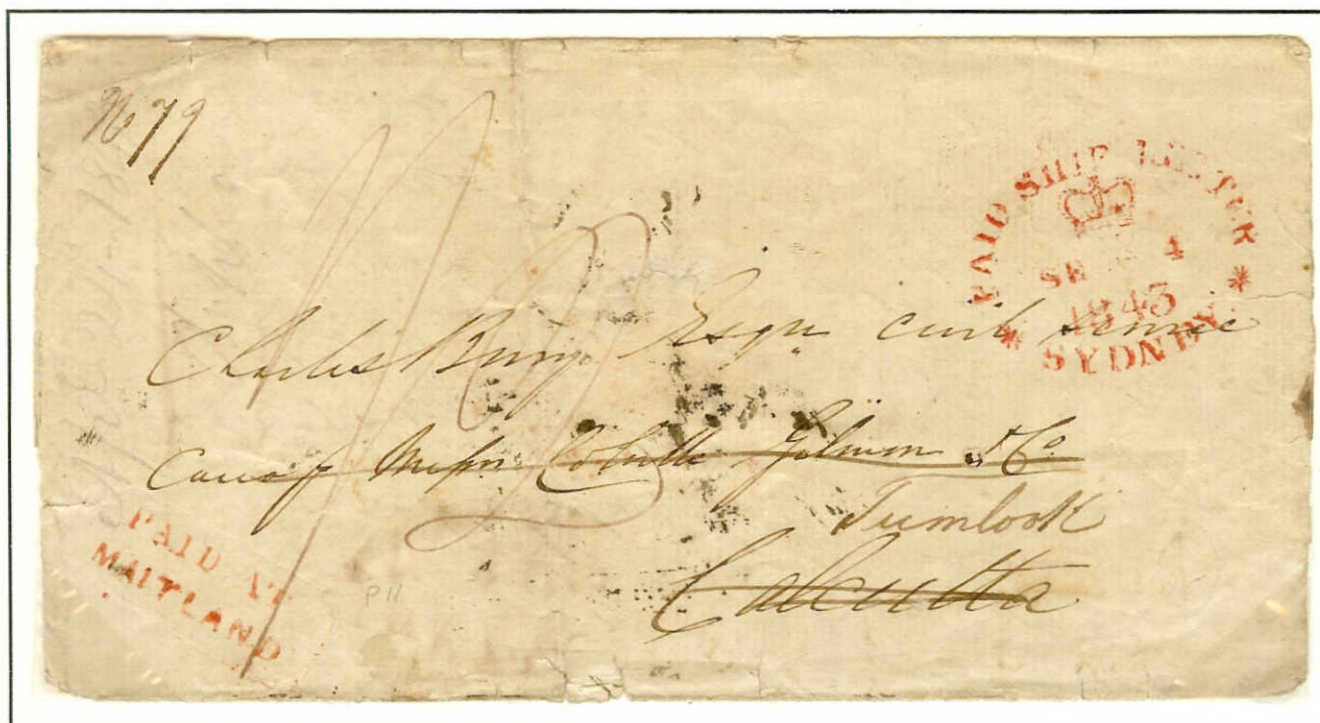 No 79
PAID SHIP LETTER
SE 4
1843
* SYDNEY *
Charles Esqre civil service
Care of Messrs Colville Gilmore & Co
Tumlook
Calcutta
PAID AT
MAITLAND
P11